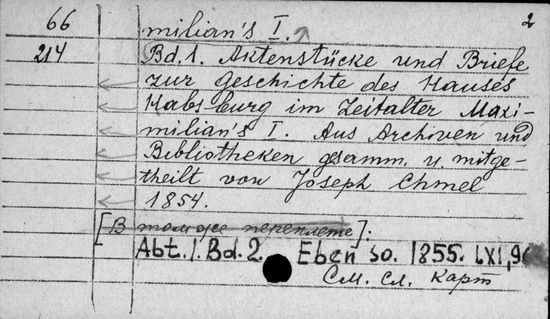 66 milian's I. 2
214 Bd. 1. Aktenstücke und Briefe
zur Geschichte des Hauses
Habsburg im Zeitalter Maxi-
milian's I. Aus Archiven und
Bibliotheken gesamm. u mitge-
theilt von Joseph Chmel
1854.
[В том же переплете].
Abt. 1. Bd. 2. Eben so. 1855. LXI, 96
См. сл. карт